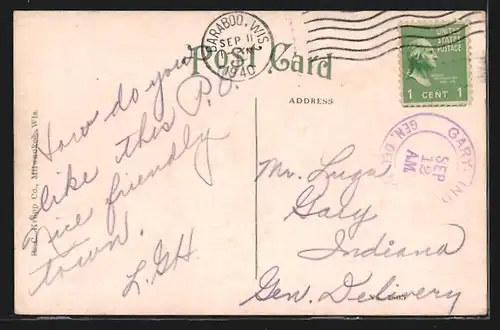 BARABOO, WIS.
SEP 11
1940
Post Card
UNITED
STATES
POSTAGE
1 CENT 1
ADDRESS
How do you
like this P.O.
Nice friendly
town.
L.G.H.
GARY, IND
GEN. DEL
SEP
13
AM
Mr. Luga
Gary
Indiana
Gen. Delivery
Co., Milwaukee, Wis.